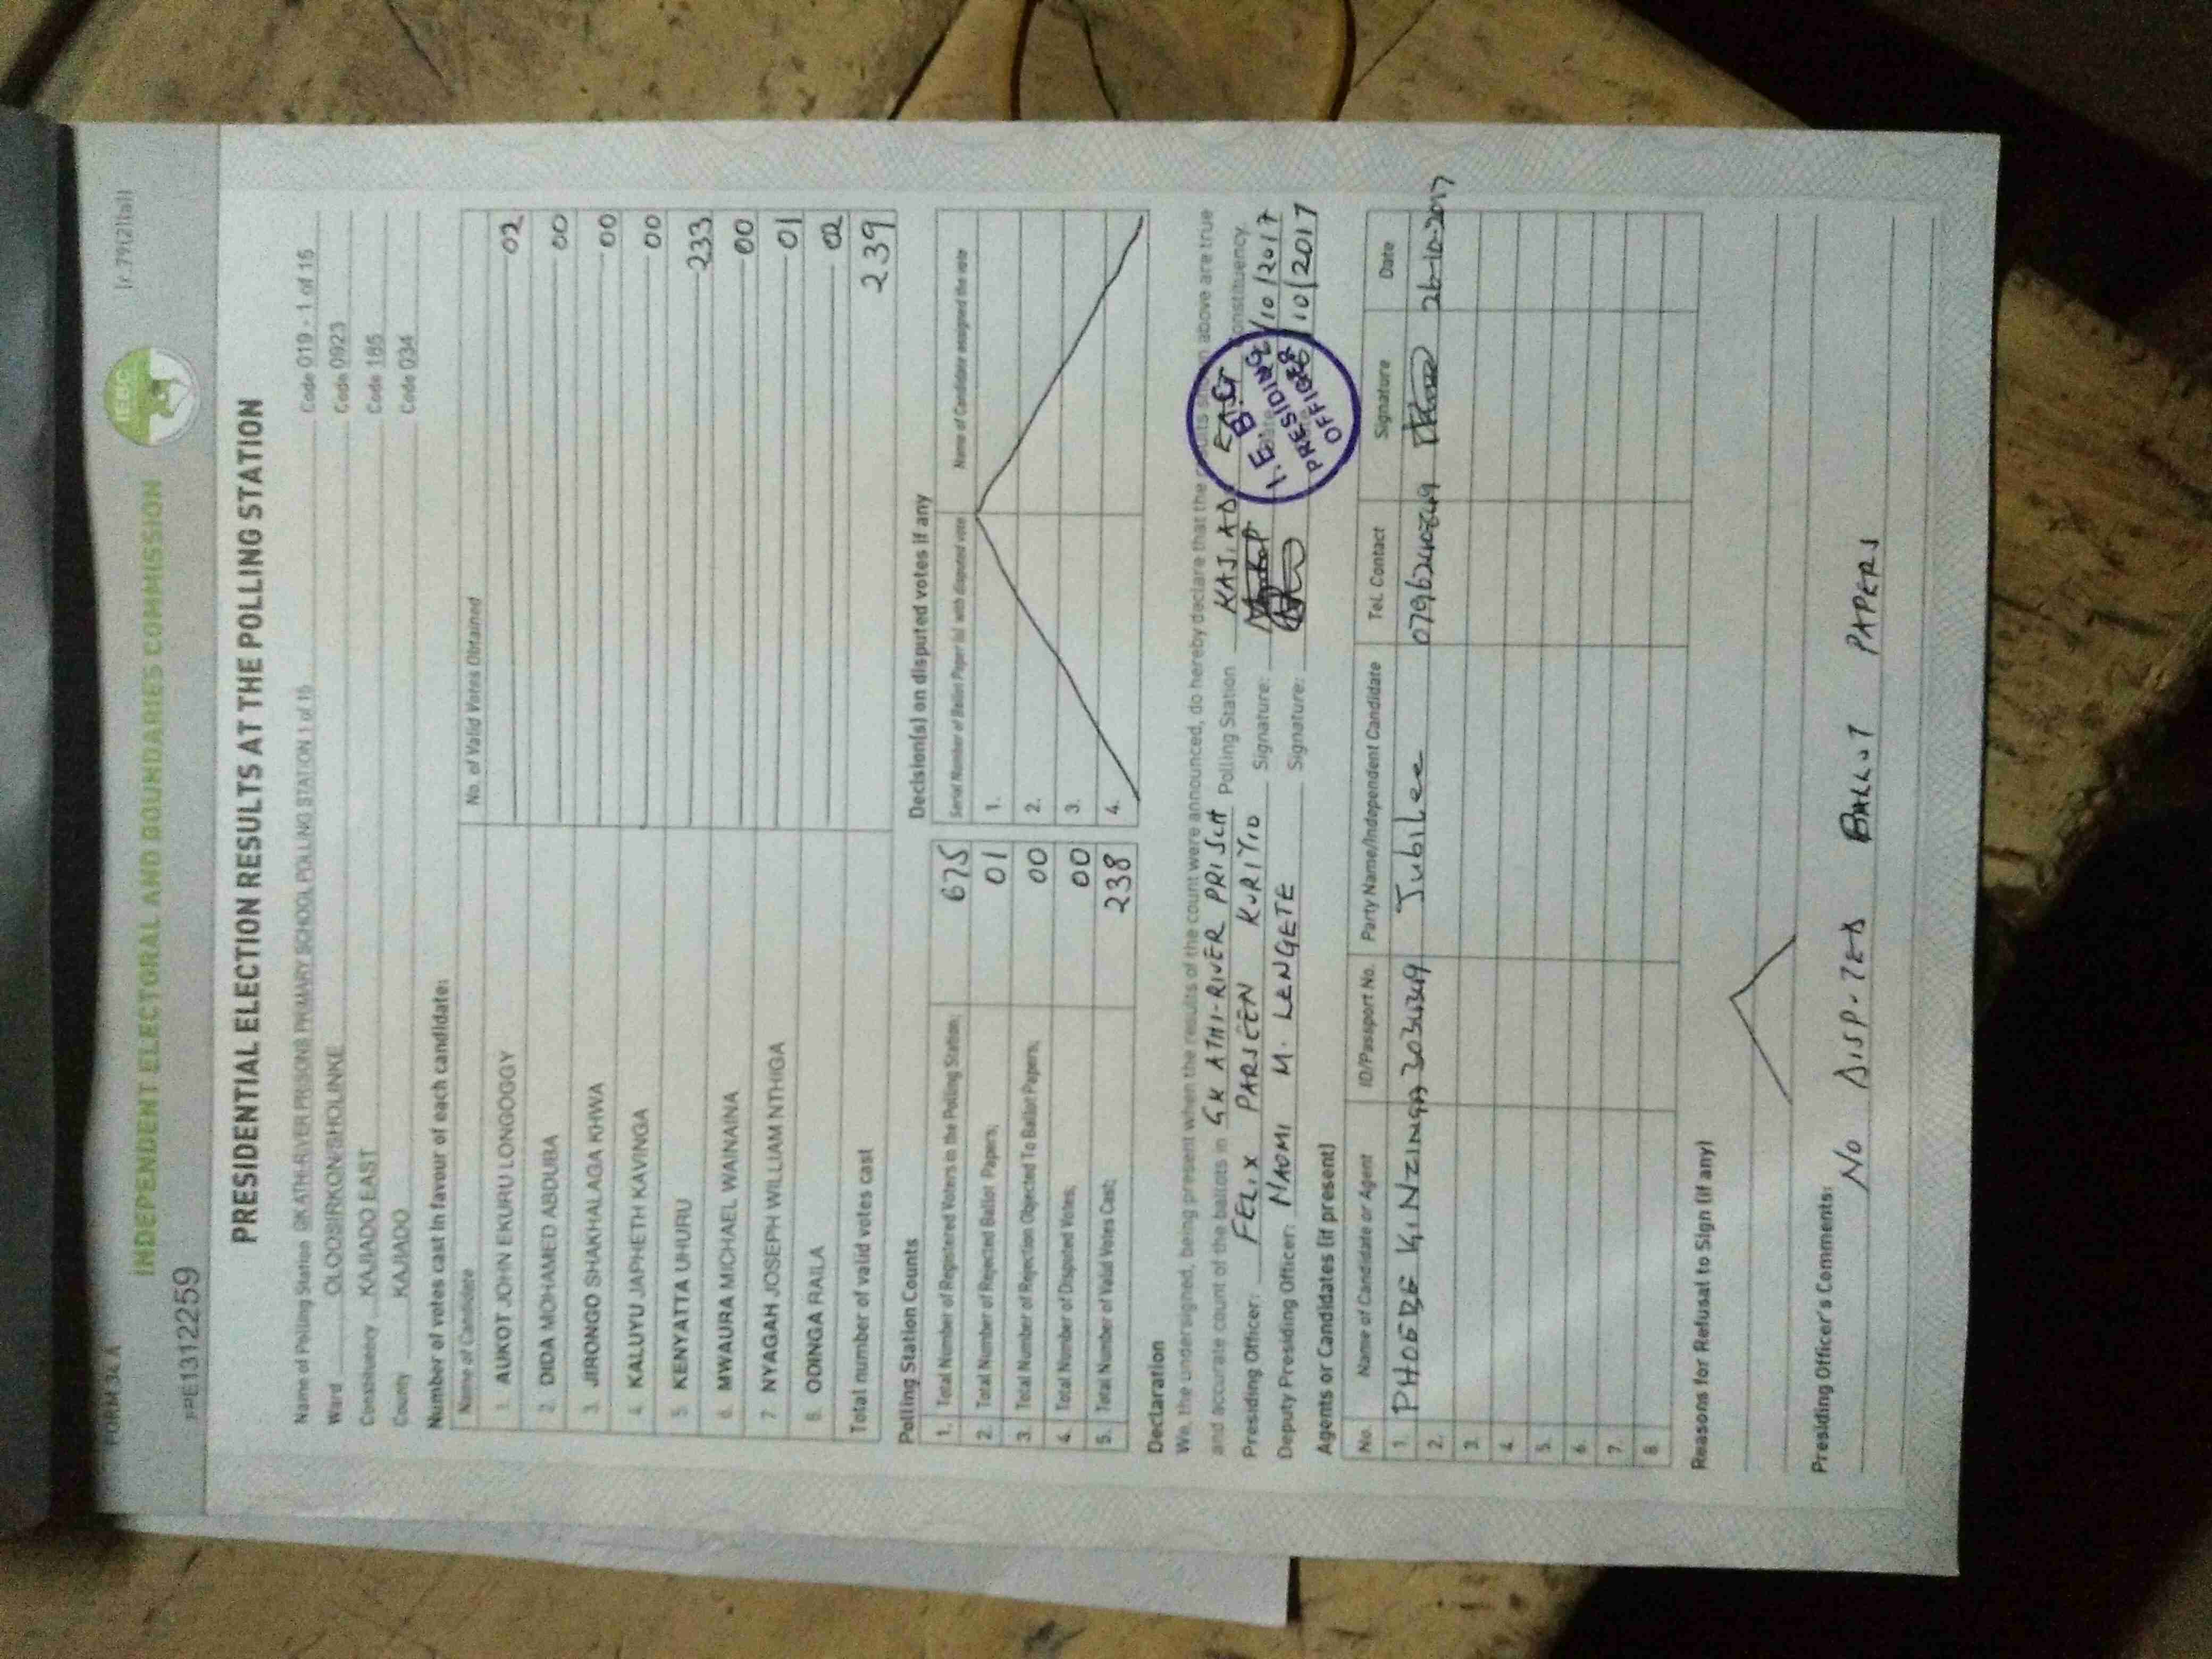 FORM 34 A
[r.79(2)(a)]
INDEPENDENT ELECTORAL AND BOUNDARIES COMMISSION
IEBC
PE1312259
PRESIDENTIAL ELECTION RESULTS AT THE POLLING STATION
Name of Polling Station GK ATHI RIVER PRISONS PRIMARY SCHOOL POLLING STATION 1 of 15 Code 019 - 1 of 15
Ward OLOOSIRKON/SHOLINKE Code 0923
Constituency KAJIADO EAST Code 185
County KAJIADO Code 034
Number of votes cast in favour of each candidate:
Name of Candidate No. of Valid Votes Obtained
1. AUKOT JOHN EKURU LONGOGGY 02
2. DIDA MOHAMED ABDUBA 00
3. JIRONGO SHAKHALAGA KHWA 00
4. KALUYU JAPHETH KAVINGA 00
5. KENYATTA UHURU 233
6. MWAURA MICHAEL WAINAINA 00
7. NYAGAH JOSEPH WILLIAM NTHIGA 01
8. ODINGA RAILA 02
Total number of valid votes cast 239
Polling Station Counts
1. Total Number of Registered Voters in the Polling Station; 675
2. Total Number of Rejected Ballot Papers; 01
3. Total Number of Rejection Objected To Ballot Papers; 00
4. Total Number of Disputed Votes; 00
5. Total Number of Valid Votes Cast; 238
Decision(s) on disputed votes if any
Serial Number of Ballot Paper (s) with disputed vote Name of Candidate assigned the vote
1.
2.
3.
4.
Declaration
We, the undersigned, being present when the results of the count were announced, do hereby declare that the above are true
and accurate count of the ballots in GK ATHI-RIVER PRI SCH Polling Station KAJIADO EAST Constituency.
Presiding Officer: FELIX PARSEEN KURIYIO Signature: /10/2017
Deputy Presiding Officer: NAOMI M. LENGETE Signature: /10/2017
I.E.B.C
PRESIDING
OFFICER
Agents or Candidates (if present)
No. Name of Candidate or Agent ID/Passport No. Party Name/Independent Candidate Tel. Contact Signature Date
1. PHOEBE Jubilee 26-10-2017
2.
3.
4.
5.
6.
7.
8.
Reasons for Refusal to Sign (if any)
Presiding Officer's Comments:
No DISPUTED BALLOT PAPERS